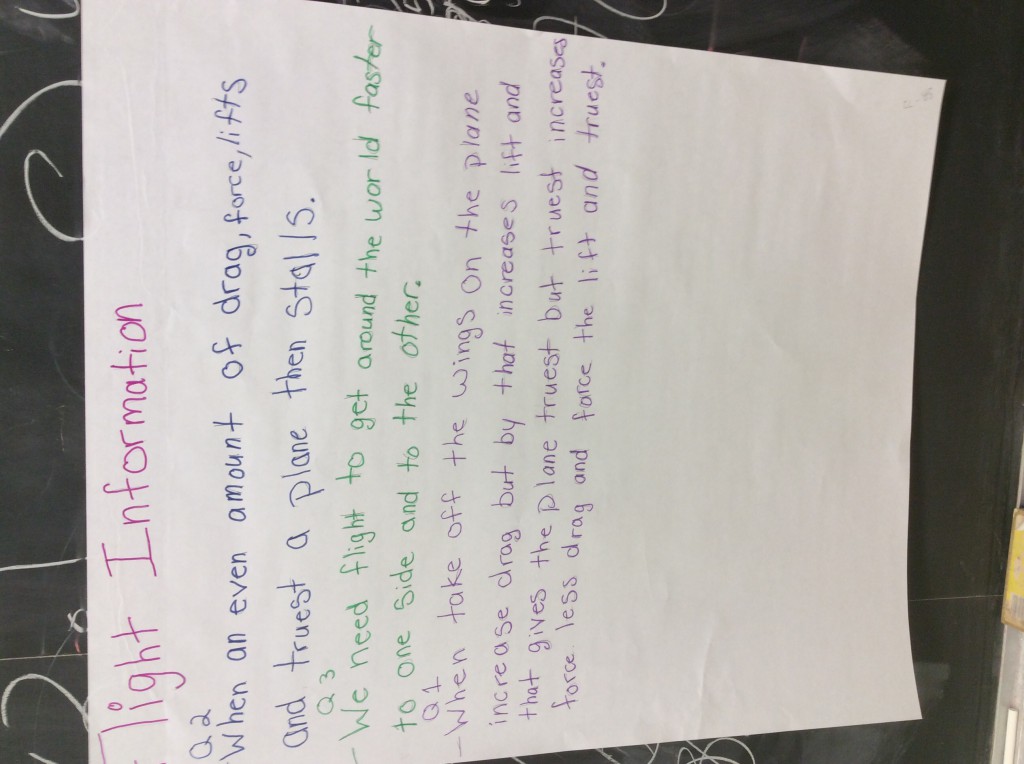 Flight Information
Q2
- When an even amount of drag, force, lifts
and truest a plane then stalls.
Q3
- We need flight to get around the world faster
to one side and to the other.
Q1
- When take off the wings on the plane
increase drag but by that increases lift and
that gives the plane truest but truest increases
force less drag and farce the lift and truest.